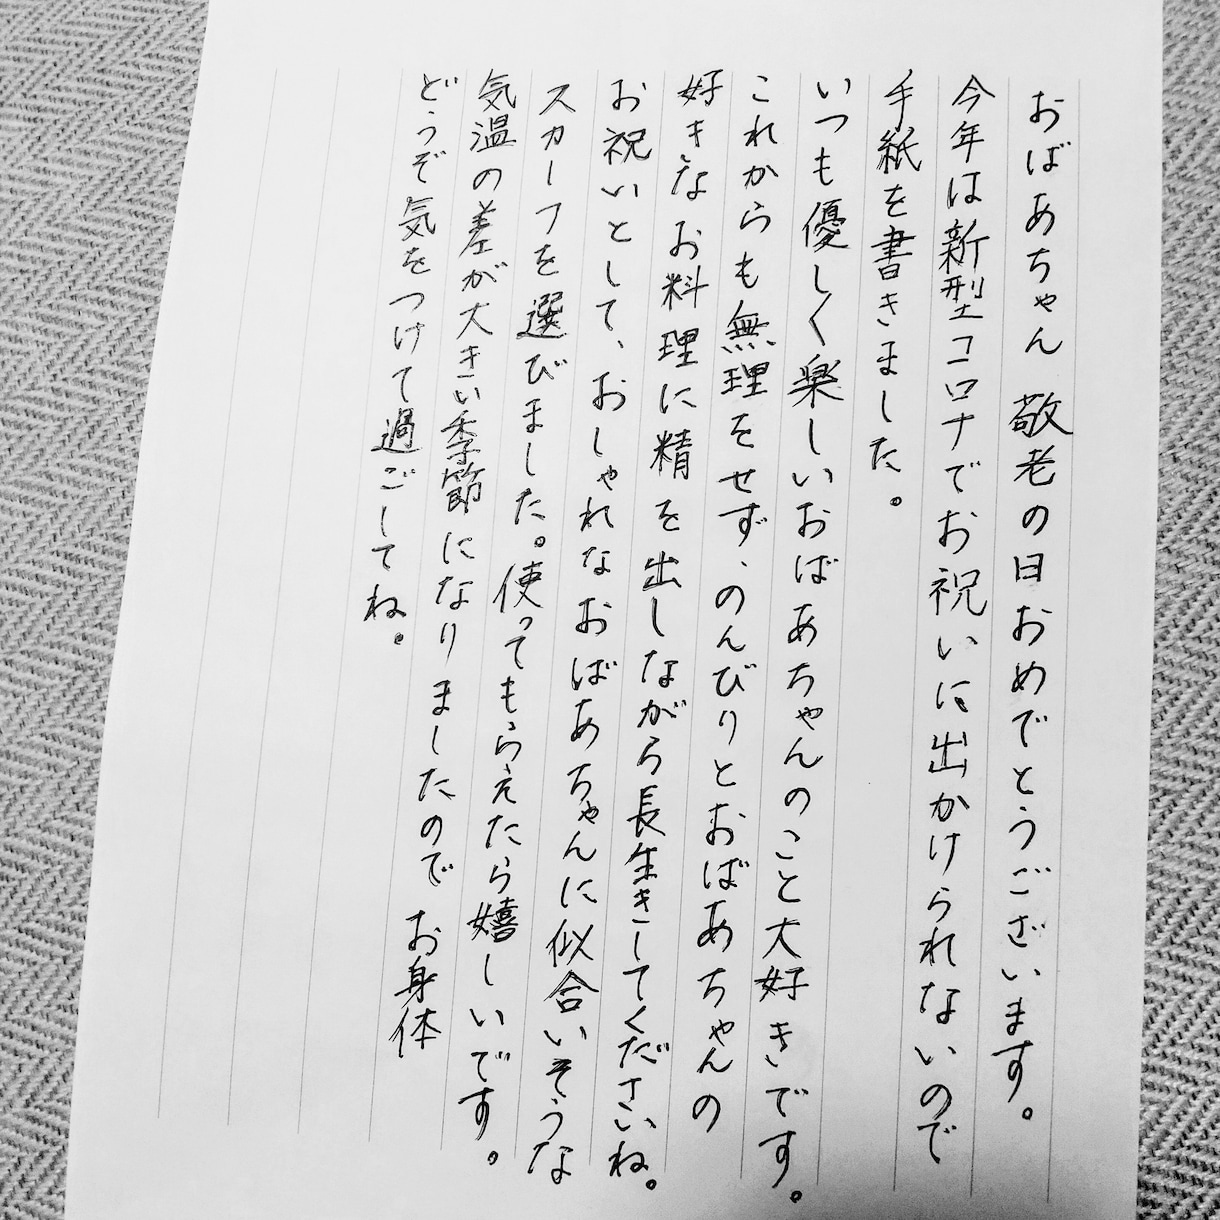 おばあちゃん 敬老の日おめでとうございます。
今年は新型コロナでお祝いに出かけられないので
手紙を書きました。
いつも優しく楽しいおばあちゃんのこと大好きです。
これからも無理をせず、のんびりとおばあちゃんの
好きなお料理に精を出しながら長生きしてくださいね。
お祝いとして、おしゃれなおばあちゃんに似合いそうな
スカーフを選びました。使ってもらえたら嬉しいです。
気温の差が大きい季節になりましたので お身体
どうぞ気をつけて過ごしてね。